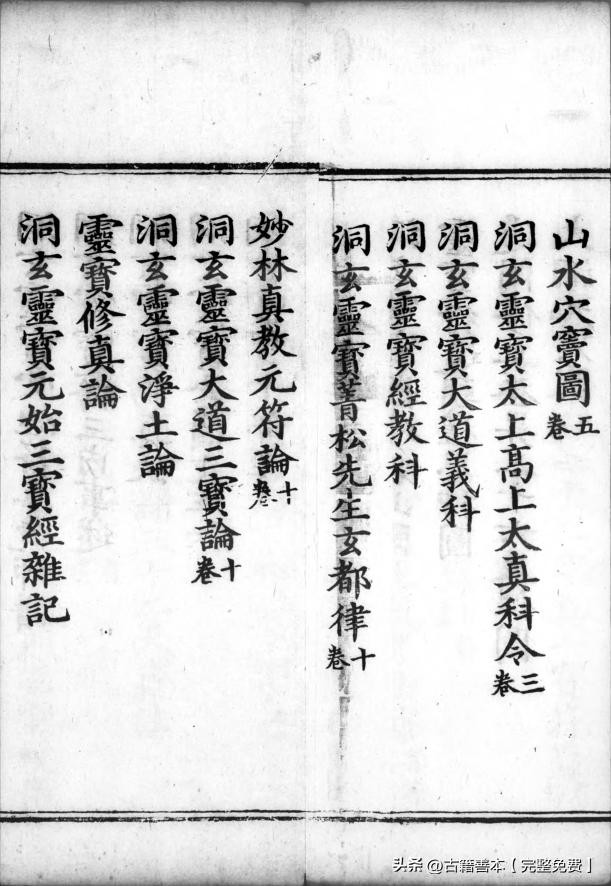 山水穴竇圖五卷
洞玄靈寶太上髙上太真科令三卷
洞玄靈寶大道義科
洞玄靈寶經教科
洞玄靈寶菁松先生玄都律十卷
妙林真教元符論十卷
洞玄靈寶大道三寶論十卷
洞玄靈寶淨土論
靈寶修真論
洞玄靈寶元始三寶經雜記
头杀 @古籍善本【完整免费】